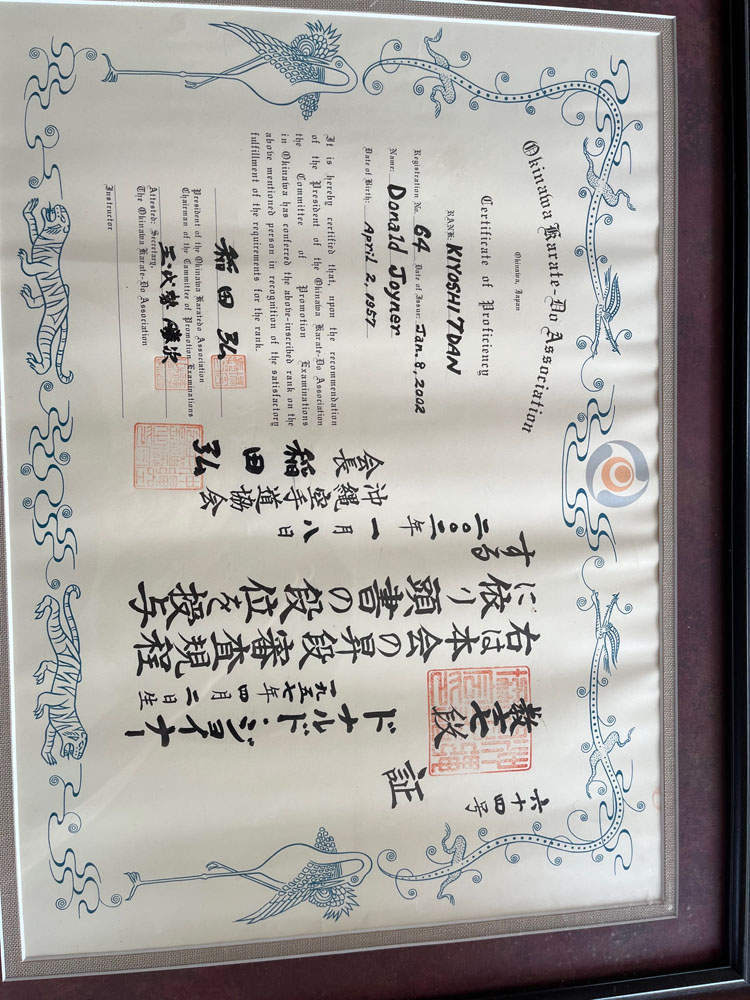 Okinawa Karate-Do Association
Okinawa, Japan
Certificate of Proficiency
RANK KIYOSHI 7 DAN
Registration No. 64 Date of Issue: Jan. 8, 2002
Name: Donald Joyner
Date of Birth: April 2, 1957
It is hereby certified that, upon the recommendation
of the President of the Okinawa Karate-Do Association
the Committee of Promotion Examinations
in Okinawa has conferred the above-inscribed rank on the
above mentioned person in recognition of the satisfactory
fulfillment of the requirements for the rank.
稲田 弘
President of the Okinawa Karatedo Association
Chairman of the Committee of Promotion Examinations
Attested: Secretary,
The Okinawa Karate-Do Association
Instructor
六十四号
証
教士七段
ドナルド・ジョイナー
一九五七年四月二日生
右は本会の昇段審査規程
に依り頭書の段位を授与
する
二〇〇二年一月八日
沖縄空手道協会
会長 稲田 弘